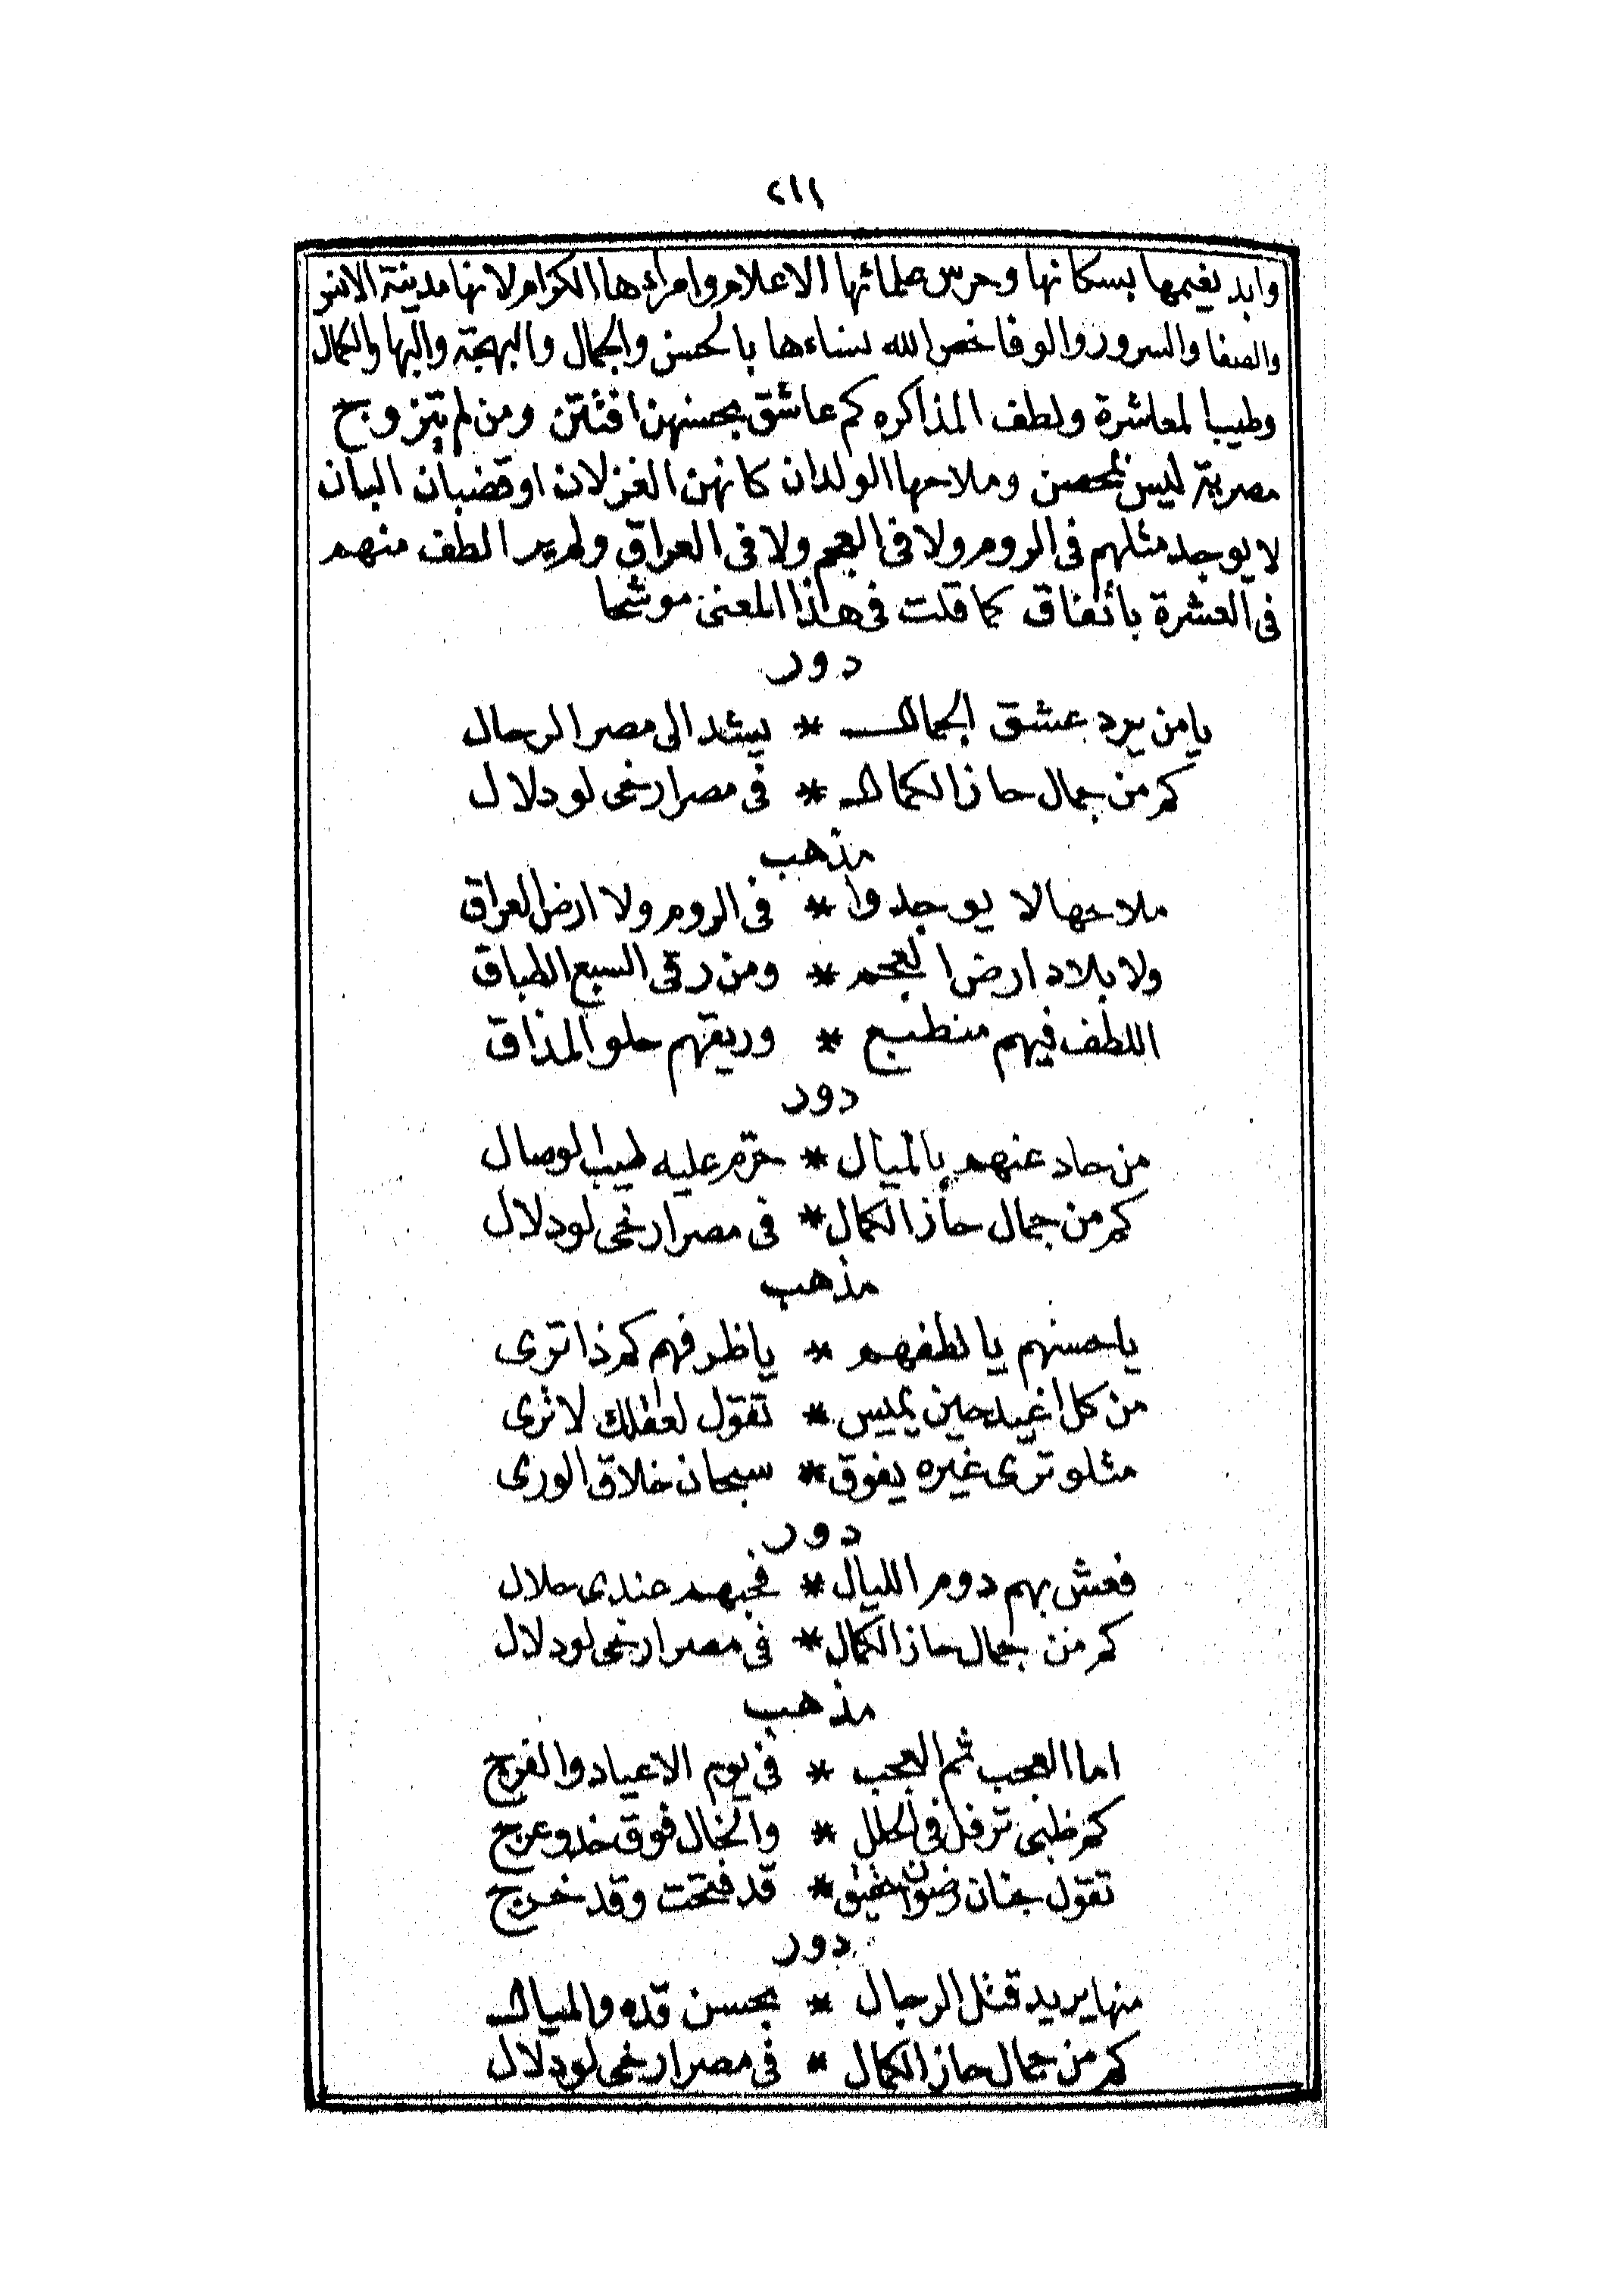 ٢١١
وابد نعيمها بسكانها وحرس علمائها الاعلام وامراءها الكرام لانها مدينة الانس
والصفا والسرور والوفا خص الله نساءها بالحسن والجمال والبهجة والبها والكمال
وطيب المعاشرة ولطف المذاكره كم عاشق بحسنهن افتتن ومن لم يتزوج
مصرية ليس بمحصن وملاحها الولدان كانهن الغزلان او قضبان البان
لا يوجد مثلهم فى الروم ولا فى العجم ولا فى العراق ولم ير الطف منهم
فى العشرة باتفاق كما قلت فى هذا المعنى موشحا
دور
يا من يرد عشق الجمال * يشد الى مصر الرحال
كم من جمال حاز الكمال * فى مصر ارخى لو دلال
مذهب
ملاحها لا يوجدوا * فى الروم ولا ارض العراق
ولا بلاد ارض العجم * ومن رقى السبع الطباق
اللطف فيهم منطبع * وريقهم حلو المذاق
دور
من حاد عنهم بالميال * حرّم عليه طيب الوصال
كم من جمال حاز الكمال * فى مصر ارخى لو دلال
مذهب
يا حسنهم يا لطفهم * يا ظرفهم كم ذا ترى
من كل اغيد حين يميس * تقول لعقلك لا ترى
مثلو ترى غيره يفوق * سبحان خلاق الورى
دور
فعش بهم دوم الليال * فحبهم عندى حلال
كم من جمال حاز الكمال * فى مصر ارخى لو دلال
مذهب
اما العجب ثم العجب * فى يوم الاعياد والفرج
كم ظبى ترفل فى الحلل * والخال فوق خدو عرج
تقول جنان رضوان * قد فتحت وقد خرج
دور
منها يريد قتل الرجال * بحسن قده والميال
كم من جمال حاز الكمال * فى مصر ارخى لو دلال